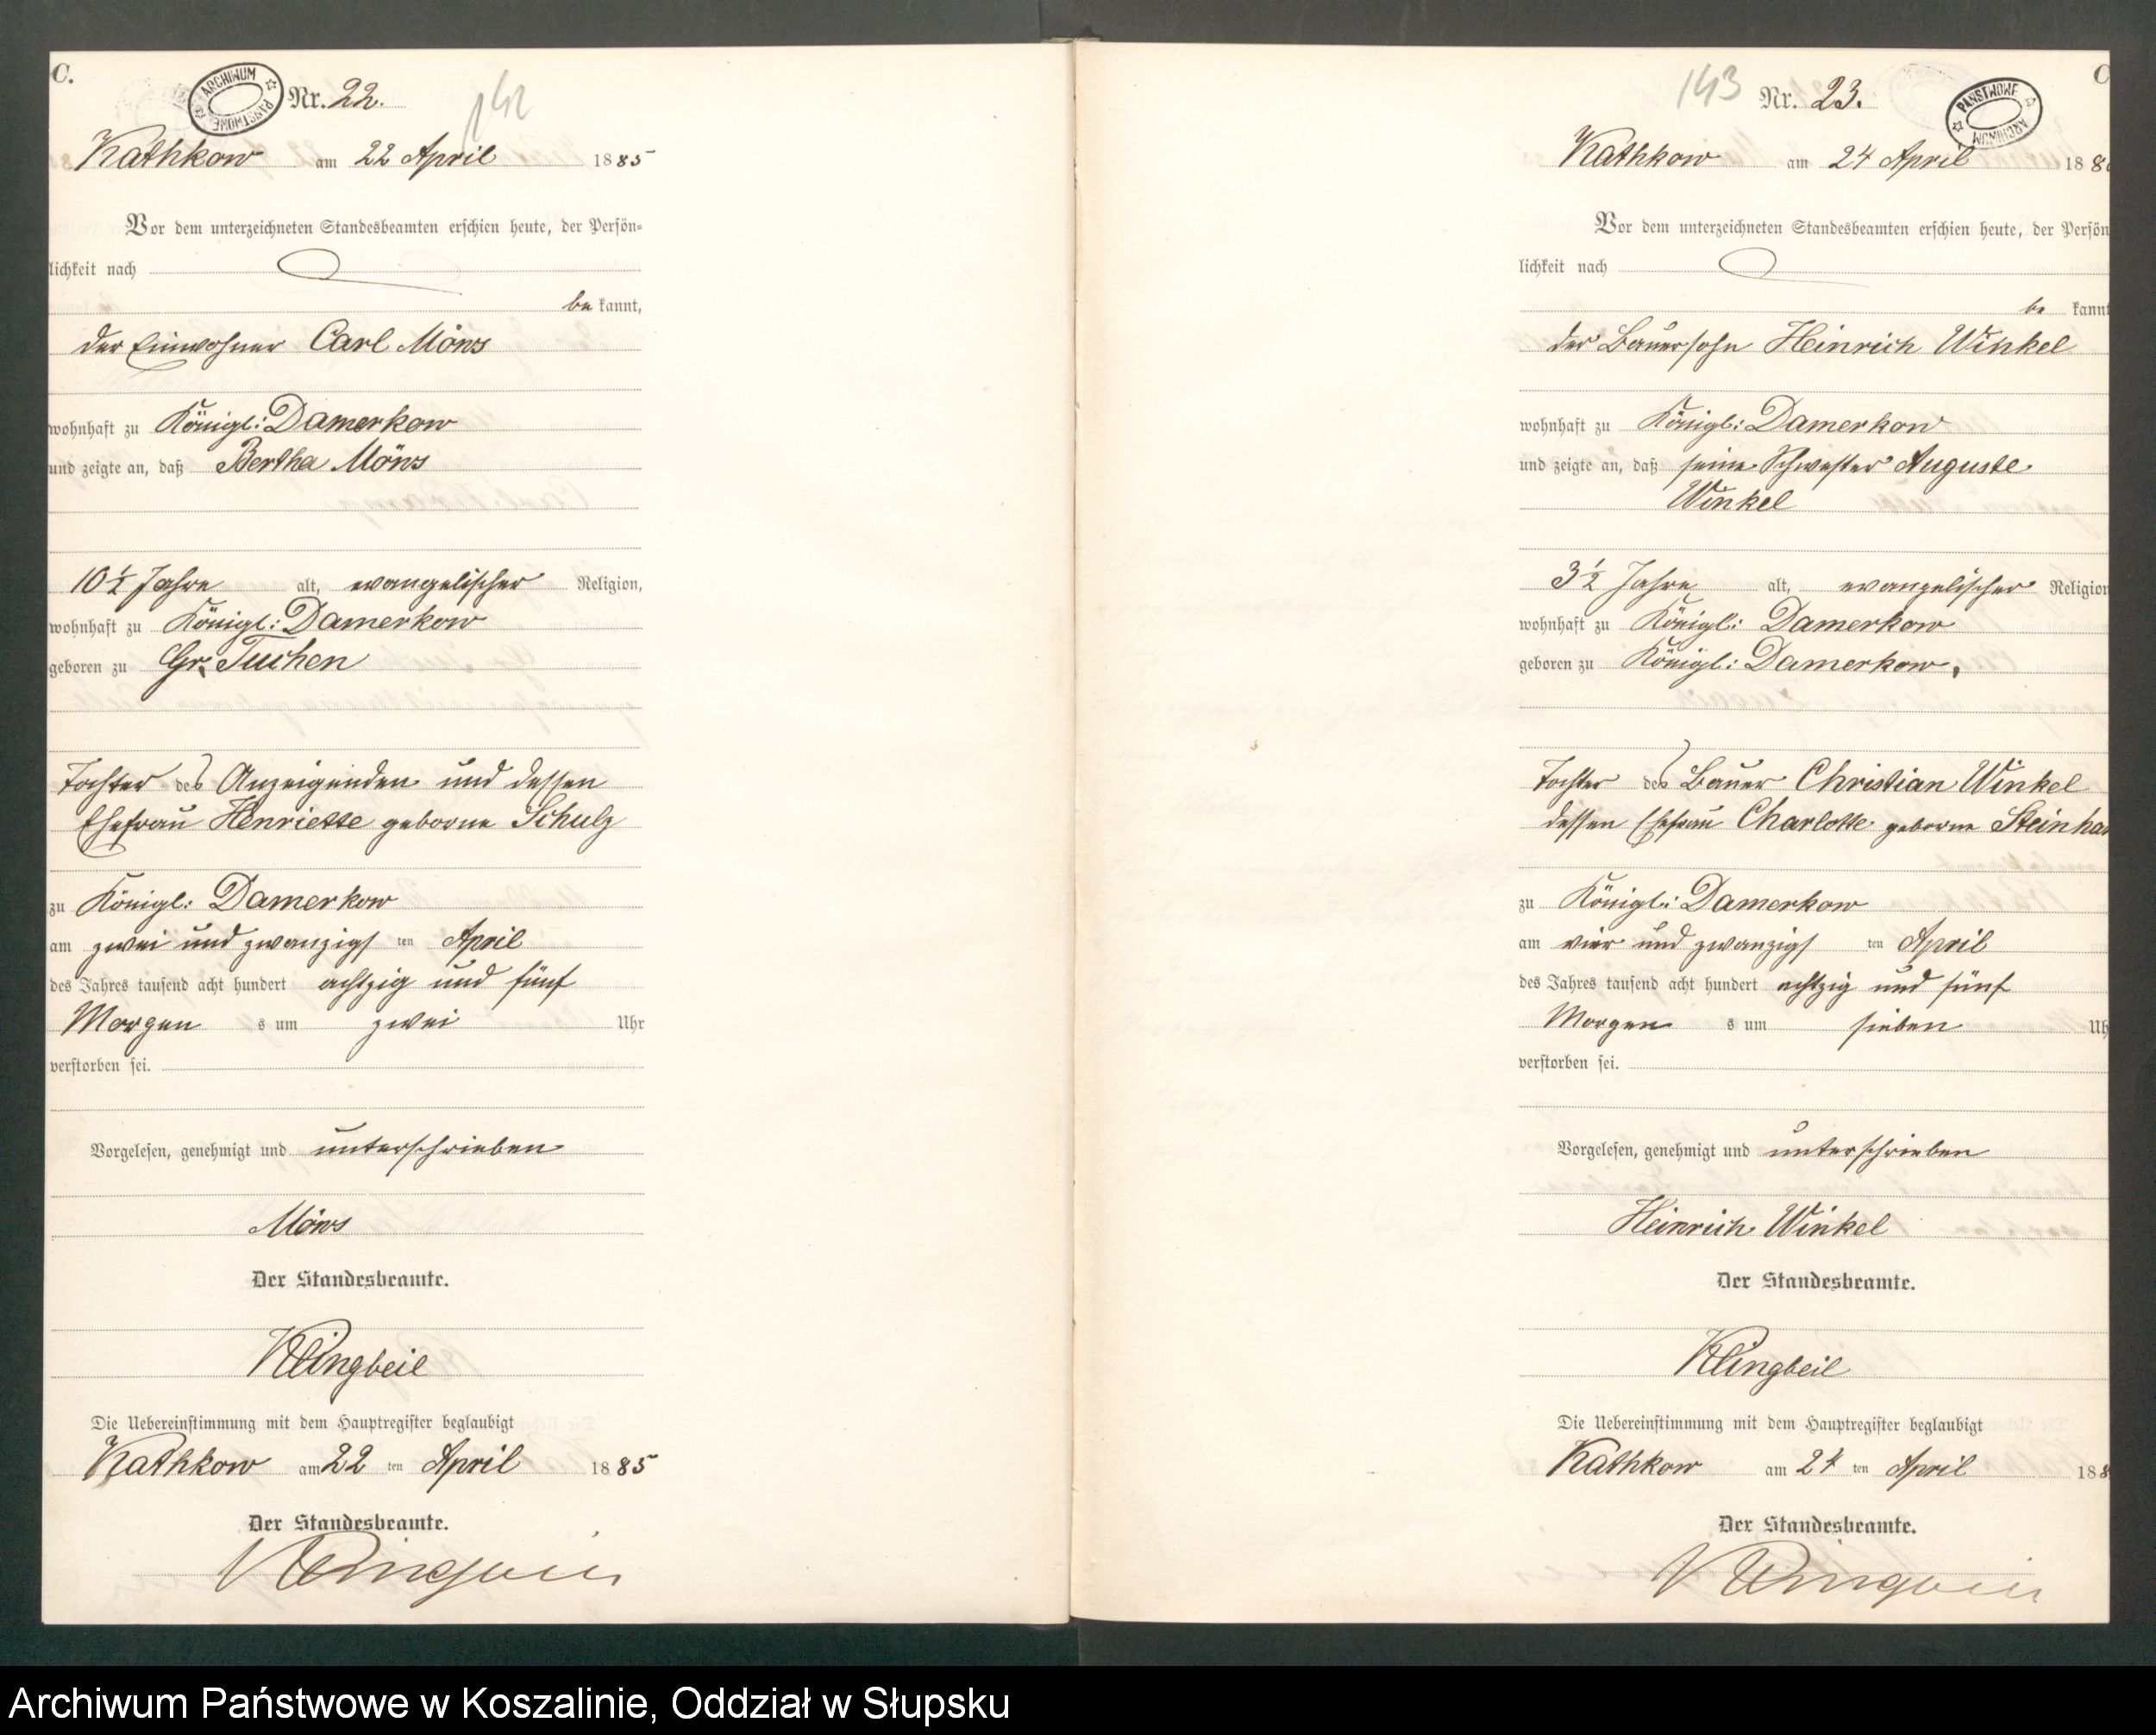 C.
ARCHIWUM PAŃSTWOWE
Nr. 22.
142
Kathkow am 22 April 1885
Vor dem unterzeichneten Standesbeamten erschien heute, der Persön-
lichkeit nach
be kannt,
der Einwohner Carl Möws
wohnhaft zu Königl: Damerkow
und zeigte an, daß Bertha Möws
10 1/2 Jahre alt, evangelischer Religion,
wohnhaft zu Königl: Damerkow
geboren zu Gr. Tuchen
Tochter des Anzeigenden und dessen
Ehefrau Henriette geborne Schulz
zu Königl: Damerkow
am zwei und zwanzigsten April
des Jahres tausend acht hundert achtzig und fünf
Morgen s um zwei Uhr
verstorben sei.
Vorgelesen, genehmigt und unterschrieben
Möws
Der Standesbeamte.
Klingbeil
Die Uebereinstimmung mit dem Hauptregister beglaubigt
Kathkow am 22 ten April 1885
Der Standesbeamte.
Klingbeil
C
143
Nr. 23.
PAŃSTWOWE ARCHIWUM
Kathkow am 24 April 188
Vor dem unterzeichneten Standesbeamten erschien heute, der Persön
lichkeit nach
be kannt
der Bauersohn Heinrich Winkel
wohnhaft zu Königl: Damerkow
und zeigte an, daß seine Schwester Auguste
Winkel
3 1/2 Jahre alt, evangelischer Religion
wohnhaft zu Königl: Damerkow
geboren zu Königl: Damerkow,
Tochter des Bauer Christian Winkel
dessen Ehefrau Charlotte geborne Steinha
zu Königl: Damerkow
am vier und zwanzigsten April
des Jahres tausend acht hundert achtzig und fünf
Morgen s um sieben Uh
verstorben sei.
Vorgelesen, genehmigt und unterschrieben
Heinrich Winkel
Der Standesbeamte.
Klingbeil
Die Uebereinstimmung mit dem Hauptregister beglaubigt
Kathkow am 24 ten April 188
Der Standesbeamte.
Klingbeil
Archiwum Państwowe w Koszalinie, Oddział w Słupsku